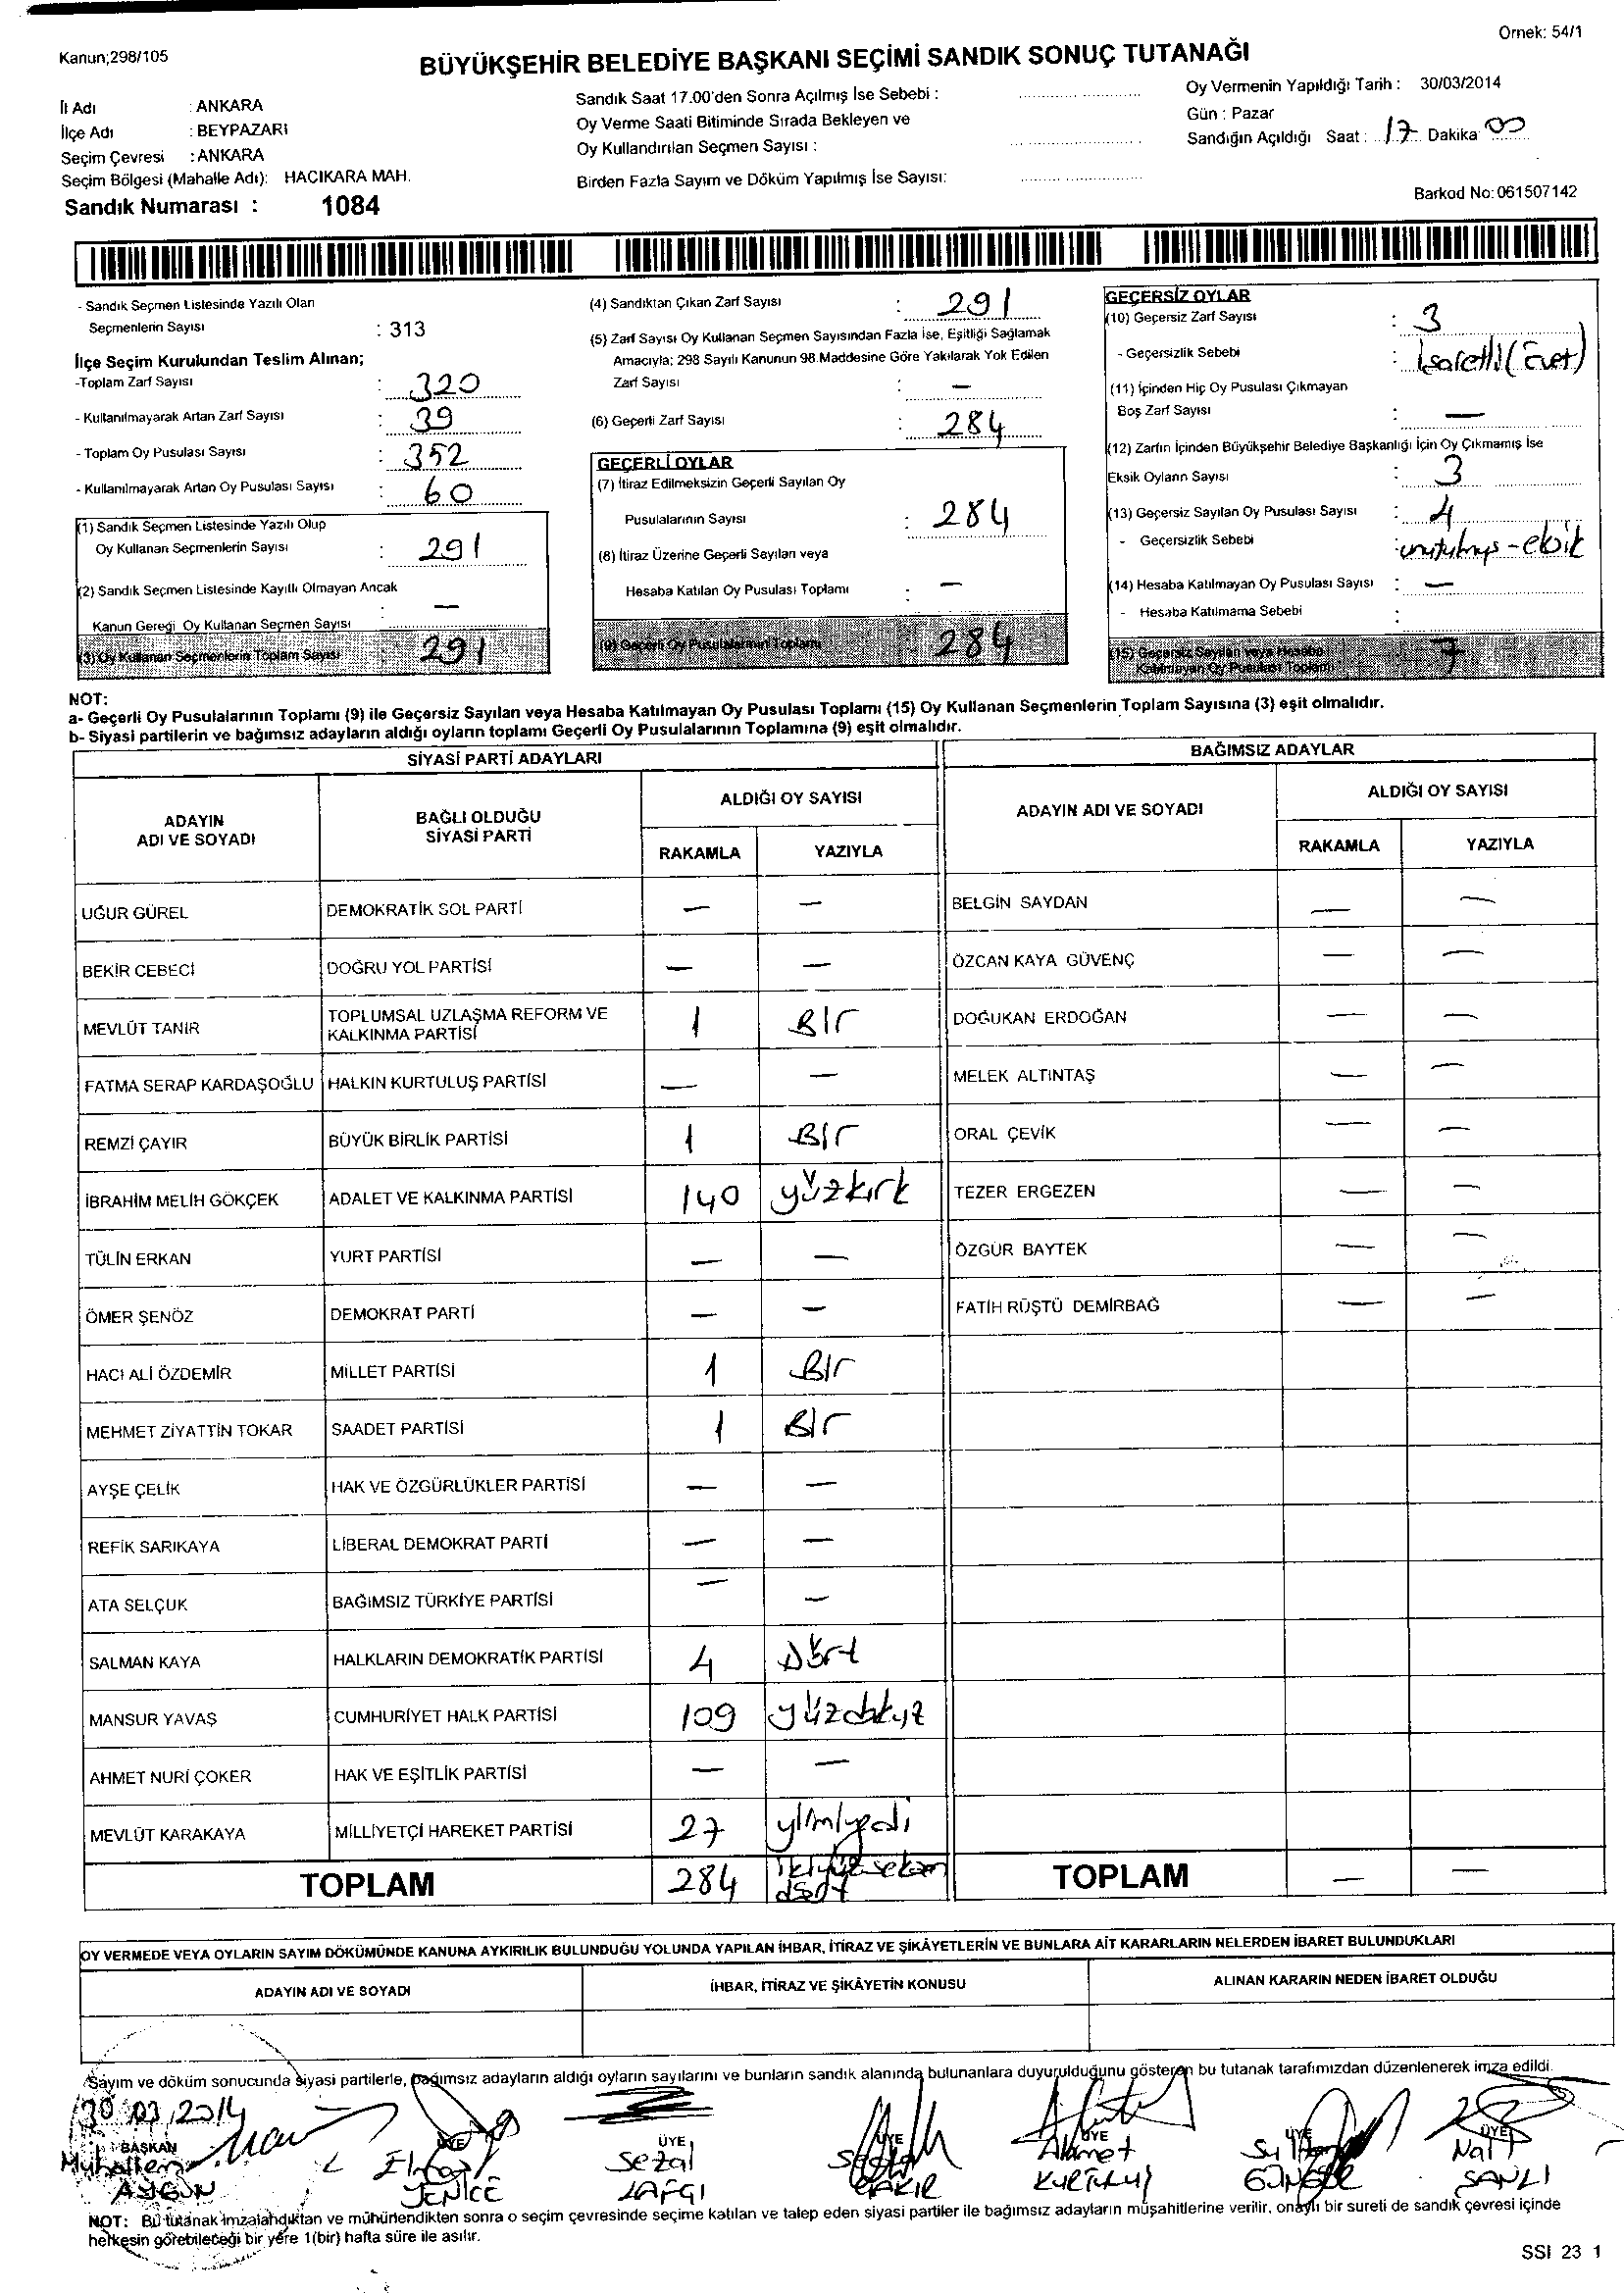 Örnek: 54/1
Kanun;298/105
BÜYÜKŞEHİR BELEDİYE BAŞKANI SEÇİMİ SANDIK SONUÇ TUTANAĞI
İl Adı : ANKARA
İlçe Adı : BEYPAZARI
Seçim Çevresi : ANKARA
Seçim Bölgesi (Mahalle Adı): HACIKARA MAH.
Sandık Numarası : 1084
Sandık Saat 17.00'den Sonra Açılmış İse Sebebi :
Oy Verme Saati Bitiminde Sırada Bekleyen ve
Oy Kullandırılan Seçmen Sayısı :
Birden Fazla Sayım ve Döküm Yapılmış İse Sayısı:
Oy Vermenin Yapıldığı Tarih : 30/03/2014
Gün : Pazar
Sandığın Açıldığı Saat : 17 Dakika 00
Barkod No: 061507142
- Sandık Seçmen Listesinde Yazılı Olan
Seçmenlerin Sayısı : 313
İlçe Seçim Kurulundan Teslim Alınan;
-Toplam Zarf Sayısı : 320
- Kullanılmayarak Artan Zarf Sayısı : 39
- Toplam Oy Pusulası Sayısı : 352
- Kullanılmayarak Artan Oy Pusulası Sayısı : 60
(1) Sandık Seçmen Listesinde Yazılı Olup
Oy Kullanan Seçmenlerin Sayısı : 291
(2) Sandık Seçmen Listesinde Kayıtlı Olmayan Ancak
Kanun Gereği Oy Kullanan Seçmen Sayısı : —
(3) Oy Kullanan Seçmenlerin Toplam Sayısı : 291
(4) Sandıktan Çıkan Zarf Sayısı : 291
(5) Zarf Sayısı Oy Kullanan Seçmen Sayısından Fazla İse, Eşitliği Sağlamak
Amacıyla; 298 Sayılı Kanunun 98.Maddesine Göre Yakılarak Yok Edilen
Zarf Sayısı : —
(6) Geçerli Zarf Sayısı : 284
GEÇERLİ OYLAR
(7) İtiraz Edilmeksizin Geçerli Sayılan Oy
Pusulalarının Sayısı : 284
(8) İtiraz Üzerine Geçerli Sayılan veya
Hesaba Katılan Oy Pusulası Toplamı : —
(9) Geçerli Oy Pusulalarının Toplamı 284
GEÇERSİZ OYLAR
(10) Geçersiz Zarf Sayısı : 3
- Geçersizlik Sebebi : İşaretli (Evet)
(11) İçinden Hiç Oy Pusulası Çıkmayan
Boş Zarf Sayısı : —
(12) Zarfın İçinden Büyükşehir Belediye Başkanlığı İçin Oy Çıkmamış İse
Eksik Oyların Sayısı : 3
(13) Geçersiz Sayılan Oy Pusulası Sayısı : 4
- Geçersizlik Sebebi :
(14) Hesaba Katılmayan Oy Pusulası Sayısı : —
- Hesaba Katılmama Sebebi :
(15) Geçersiz Sayılan veya Hesaba
Katılmayan Oy Pusulası Toplamı 7
NOT:
a- Geçerli Oy Pusulalarının Toplamı (9) ile Geçersiz Sayılan veya Hesaba Katılmayan Oy Pusulası Toplamı (15) Oy Kullanan Seçmenlerin Toplam Sayısına (3) eşit olmalıdır.
b- Siyasi partilerin ve bağımsız adayların aldığı oyların toplamı Geçerli Oy Pusulalarının Toplamına (9) eşit olmalıdır.
SİYASİ PARTİ ADAYLARI
ADAYIN ADI VE SOYADI BAĞLI OLDUĞU SİYASİ PARTİ ALDIĞI OY SAYISI
RAKAMLA YAZIYLA
UĞUR GÜREL DEMOKRATİK SOL PARTİ — —
BEKİR CEBECİ DOĞRU YOL PARTİSİ — —
MEVLÜT TANIR TOPLUMSAL UZLAŞMA REFORM VE KALKINMA PARTİSİ 1 Bir
FATMA SERAP KARDAŞOĞLU HALKIN KURTULUŞ PARTİSİ — —
REMZİ ÇAYIR BÜYÜK BİRLİK PARTİSİ 1 Bir
İBRAHİM MELİH GÖKÇEK ADALET VE KALKINMA PARTİSİ 140 yüzkırk
TÜLİN ERKAN YURT PARTİSİ — —
ÖMER ŞENÖZ DEMOKRAT PARTİ — —
HACI ALİ ÖZDEMİR MİLLET PARTİSİ 1 Bir
MEHMET ZİYATTİN TOKAR SAADET PARTİSİ 1 Bir
AYŞE ÇELİK HAK VE ÖZGÜRLÜKLER PARTİSİ — —
REFİK SARIKAYA LİBERAL DEMOKRAT PARTİ — —
ATA SELÇUK BAĞIMSIZ TÜRKİYE PARTİSİ — —
SALMAN KAYA HALKLARIN DEMOKRATİK PARTİSİ 4 Dört
MANSUR YAVAŞ CUMHURİYET HALK PARTİSİ 109 yüzdokuz
AHMET NURİ ÇOKER HAK VE EŞİTLİK PARTİSİ — —
MEVLÜT KARAKAYA MİLLİYETÇİ HAREKET PARTİSİ 27 yirmiyedi
TOPLAM 284 ikiyüzseksen dört
BAĞIMSIZ ADAYLAR
ADAYIN ADI VE SOYADI ALDIĞI OY SAYISI
RAKAMLA YAZIYLA
BELGİN SAYDAN — —
ÖZCAN KAYA GÜVENÇ — —
DOĞUKAN ERDOĞAN — —
MELEK ALTINTAŞ — —
ORAL ÇEVİK — —
TEZER ERGEZEN — —
ÖZGÜR BAYTEK — —
FATİH RÜŞTÜ DEMİRBAĞ — —
TOPLAM — —
OY VERMEDE VEYA OYLARIN SAYIM DÖKÜMÜNDE KANUNA AYKIRILIK BULUNDUĞU YOLUNDA YAPILAN İHBAR, İTİRAZ VE ŞİKÂYETLERİN VE BUNLARA AİT KARARLARIN NELERDEN İBARET BULUNDUKLARI
ADAYIN ADI VE SOYADI İHBAR, İTİRAZ VE ŞİKÂYETİN KONUSU ALINAN KARARIN NEDEN İBARET OLDUĞU
Sayım ve döküm sonucunda siyasi partilerle, bağımsız adayların aldığı oyların sayılarını ve bunların sandık alanında bulunanlara duyurulduğunu gösteren bu tutanak tarafımızdan düzenlenerek imza edildi.
30.03.2014
BAŞKAN ÜYE ÜYE ÜYE ÜYE ÜYE ÜYE
Muharrem Sezai Ahmet Nail
AYGÜN YENİCE KURTULUŞ GÜNGÖR SANLI
NOT: Bu tutanak imzalandıktan ve mühürlendikten sonra o seçim çevresinde seçime katılan ve talep eden siyasi partiler ile bağımsız adayların müşahitlerine verilir, onaylı bir sureti de sandık çevresi içinde
herkesin görebileceği bir yere 1(bir) hafta süre ile asılır.
SSI 23 1